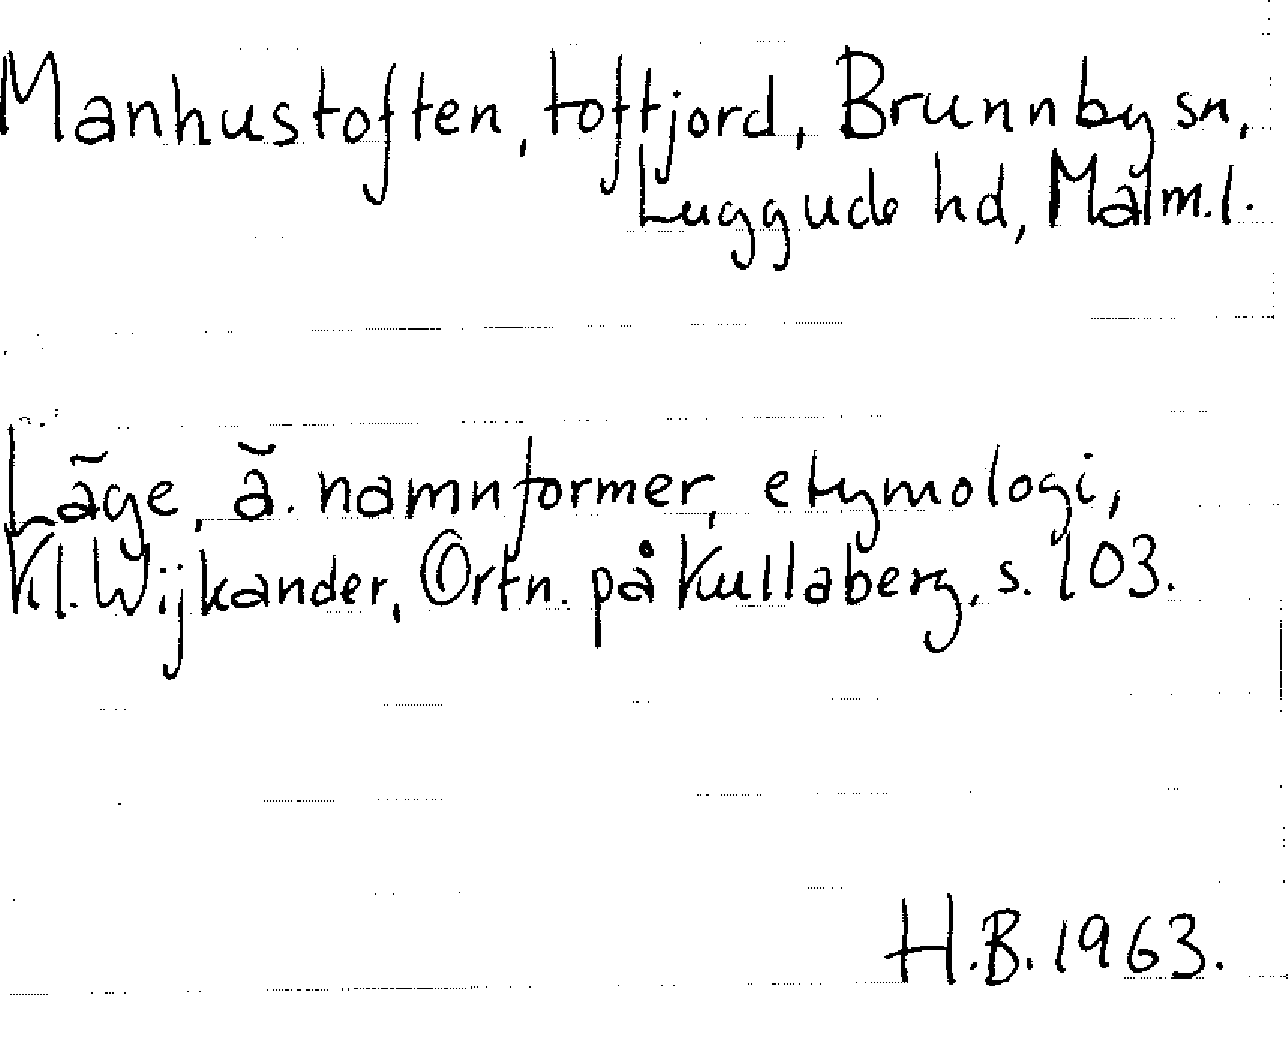 Manhustoften, toftjord, Brunnby sn,
Luggude hd, Malm.l.
Läge, ä. namnformer, etymologi,
Kl. Wijkander, Ortn. på Kullaberg, s. 103.
H.B. 1963.